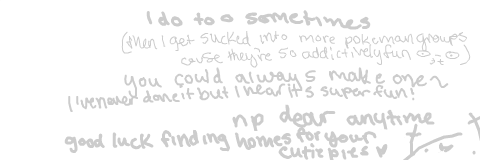 I do too sometimes
(then I get sucked into more pokemon groups
cause they're so addictively fun ;~;)
you could always make one~
I've never done it but I hear it's super fun!
np dear anytime
good luck finding homes for your
cutiepies ♥